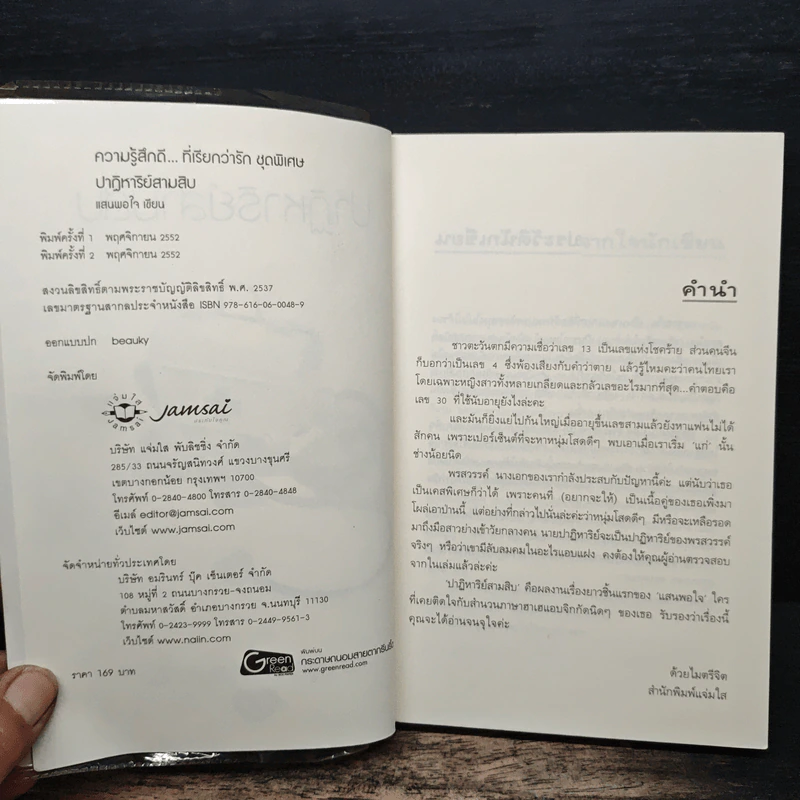 ความรู้สึกดี... ที่เรียกว่ารัก ชุดพิเศษ
ปาฏิหาริย์สามสิบ
แสนพอใจ เขียน
พิมพ์ครั้งที่ 1 พฤศจิกายน 2552
พิมพ์ครั้งที่ 2 พฤศจิกายน 2552
สงวนลิขสิทธิ์ตามพระราชบัญญัติลิขสิทธิ์ พ.ศ. 2537
เลขมาตรฐานสากลประจำหนังสือ ISBN 978-616-06-0048-9
ออกแบบปก beauky
จัดพิมพ์โดย
แจ่มใส
Jamsai
Jamsai
บริษัท แจ่มใส พับลิชชิ่ง จำกัด
285/33 ถนนจรัญสนิทวงศ์ แขวงบางขุนศรี
เขตบางกอกน้อย กรุงเทพฯ 10700
โทรศัพท์ 0-2840-4800 โทรสาร 0-2840-4848
อีเมล์ editor@jamsai.com
เว็บไซต์ www.jamsai.com
จัดจำหน่ายทั่วประเทศโดย
บริษัท อมรินทร์ บุ๊ค เซ็นเตอร์ จำกัด
108 หมู่ที่ 2 ถนนบางกรวย-จงถนอม
ตำบลมหาสวัสดิ์ อำเภอบางกรวย จ.นนทบุรี 11130
โทรศัพท์ 0-2423-9999 โทรสาร 0-2449-9561-3
เว็บไซต์ www.naiin.com
ราคา 169 บาท
Green Read
พิมพ์บน
กระดาษถนอมสายตากรีนรี้ด
www.greenread.com
คำนำ
ชาวตะวันตกมีความเชื่อว่าเลข 13 เป็นเลขแห่งโชคร้าย ส่วนคนจีน
ก็บอกว่าเป็นเลข 4 ซึ่งพ้องเสียงกับคำว่าตาย แล้วรู้ไหมคะว่าคนไทยเรา
โดยเฉพาะหญิงสาวทั้งหลายเกลียดและกลัวเลขอะไรมากที่สุด...คำตอบคือ
เลข 30 ที่ใช้นับอายุยังไงล่ะคะ
และมันก็ยิ่งแย่ไปกันใหญ่เมื่ออายุขึ้นเลขสามแล้วยังหาแฟนไม่ได้
สักคน เพราะเปอร์เซ็นต์ที่จะหาหนุ่มโสดดีๆ พบเอาเมื่อเราเริ่ม 'แก่' นั้น
ช่างน้อยนิด
พรสวรรค์ นางเอกของเรากำลังประสบกับปัญหานี้ค่ะ แต่นับว่าเธอ
เป็นเคสพิเศษก็ว่าได้ เพราะคนที่ (อยากจะให้) เป็นเนื้อคู่ของเธอเพิ่งมา
โผล่เอาป่านนี้ แต่อย่างที่กล่าวไปนั่นล่ะค่ะว่าหนุ่มโสดดีๆ มีหรือจะเหลือรอด
มาถึงมือสาวย่างเข้าวัยกลางคน นายปาฏิหาริย์จะเป็นปาฏิหาริย์ของพรสวรรค์
จริงๆ หรือว่าเขามีลับลมคมในอะไรแอบแฝง คงต้องให้คุณผู้อ่านตรวจสอบ
จากในเล่มแล้วล่ะค่ะ
'ปาฏิหาริย์สามสิบ' คือผลงานเรื่องยาวชิ้นแรกของ 'แสนพอใจ' ใคร
ที่เคยติดใจกับสำนวนภาษาฮาเฮแอบจิกกัดนิดๆ ของเธอ รับรองว่าเรื่องนี้
คุณจะได้อ่านจนจุใจค่ะ
ด้วยไมตรีจิต
สำนักพิมพ์แจ่มใส